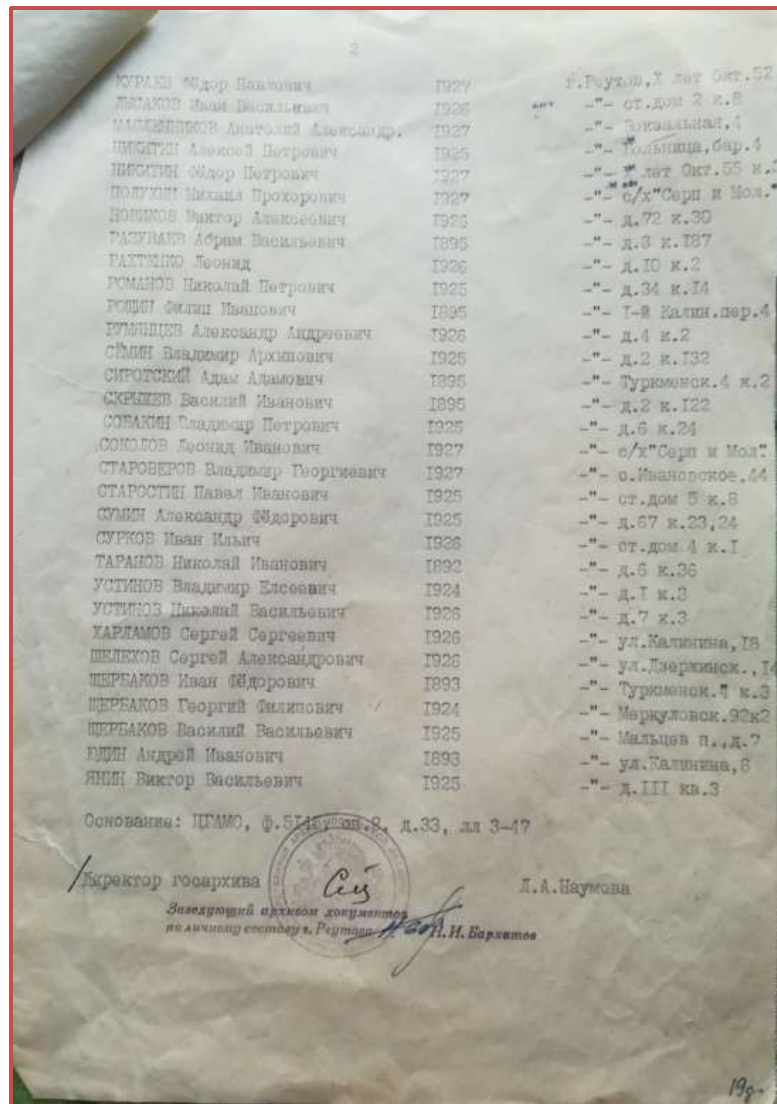 2
КУРАЕВ Фёдор Павлович 1927 г.Реутов,X лет Окт.52
ЛЫСАКОВ Иван Васильевич 1926 -"- ст.дом 2 к.8
МАСЛЕННИКОВ Анатолий Александр. 1927 -"- Вокзальная,4
НИКИТИН Алексей Петрович 1925 -"- Больница,бар.4
НИКИТИН Фёдор Петрович 1927 -"- лет Окт.55 к.
ПОЛУХИН Михаил Прохорович 1927 -"- с/х"Серп и Мол."
НОВИКОВ Виктор Алексеевич 1926 -"- д.72 к.30
РАЗУВАЕВ Абрам Васильевич 1895 -"- д.3 к.I87
РАХТЕНКО Леонид 1926 -"- д.IO к.2
РОМАНОВ Николай Петрович 1925 -"- д.34 к.I4
РОЩИН Филип Иванович 1895 -"- I-й Калин.пер.4
РУМЯНЦЕВ Александр Андреевич 1926 -"- д.4 к.2
СЁМИН Владимир Архипович 1925 -"- д.2 к.I32
СИРОТСКИЙ Адам Адамович 1895 -"- Туркменск.4 к.2
СКРЫЖЕВ Василий Иванович 1895 -"- д.2 к.I22
СОБАКИН Владимир Петрович 1925 -"- д.6 к.24
СОКОЛОВ Леонид Иванович 1927 -"- с/х"Серп и Мол".
СТАРОВЕРОВ Владимир Георгиевич 1927 -"- с.Ивановское,44
СТАРОСТИН Павел Иванович 1925 -"- ст.дом 5 к.8
СУМИН Александр Фёдорович 1925 -"- д.67 к.23,24
СУРКОВ Иван Ильич 1926 -"- ст.дом 4 к.I
ТАРАНОВ Николай Иванович 1892 -"- д.6 к.36
УСТИНОВ Владимир Елсеевич 1924 -"- д.I к.3
УСТИНОВ Николай Васильевич 1926 -"- д.7 к.3
ХАРЛАМОВ Сергей Сергеевич 1926 -"- ул.Калинина,I8
ШЕЛЕХОВ Сергей Александрович 1926 -"- ул.Дзержинск.,I4
ЩЕРБАКОВ Иван Фёдорович 1893 -"- Туркменск. к.3
ЩЕРБАКОВ Георгий Филипович 1924 -"- Меркуловск.92к2
ЩЕРБАКОВ Василий Васильевич 1925 -"- Мальцев п.,д.7
ЮДИН Андрей Иванович 1893 -"- ул.Калинина,8
ЯНИН Виктор Васильевич 1925 -"- д.III кв.3
Основание: ЦГАМО, ф.5I45, оп.2, д.33, лл 3-47
/Директор госархива Л.А.Наумова
Заведующий архивом документов
по личному составу г. Реутова Н.И. Бархатов
19